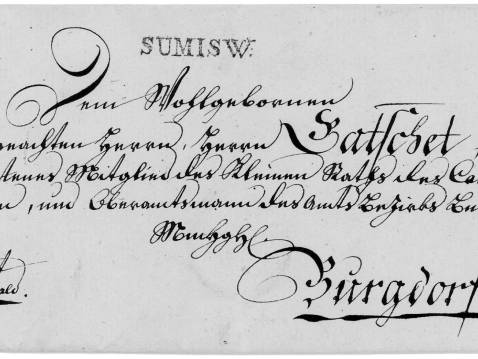 SUMISW:
Dem Wohlgebornen
geachten Herrn, Herrn Gatschet,
tenes Mitglied des Kleinen Raths des Ca
n, und Oberamtsmann des Amts Bezirks Bu
MmHghH
ald.
Burgdorf